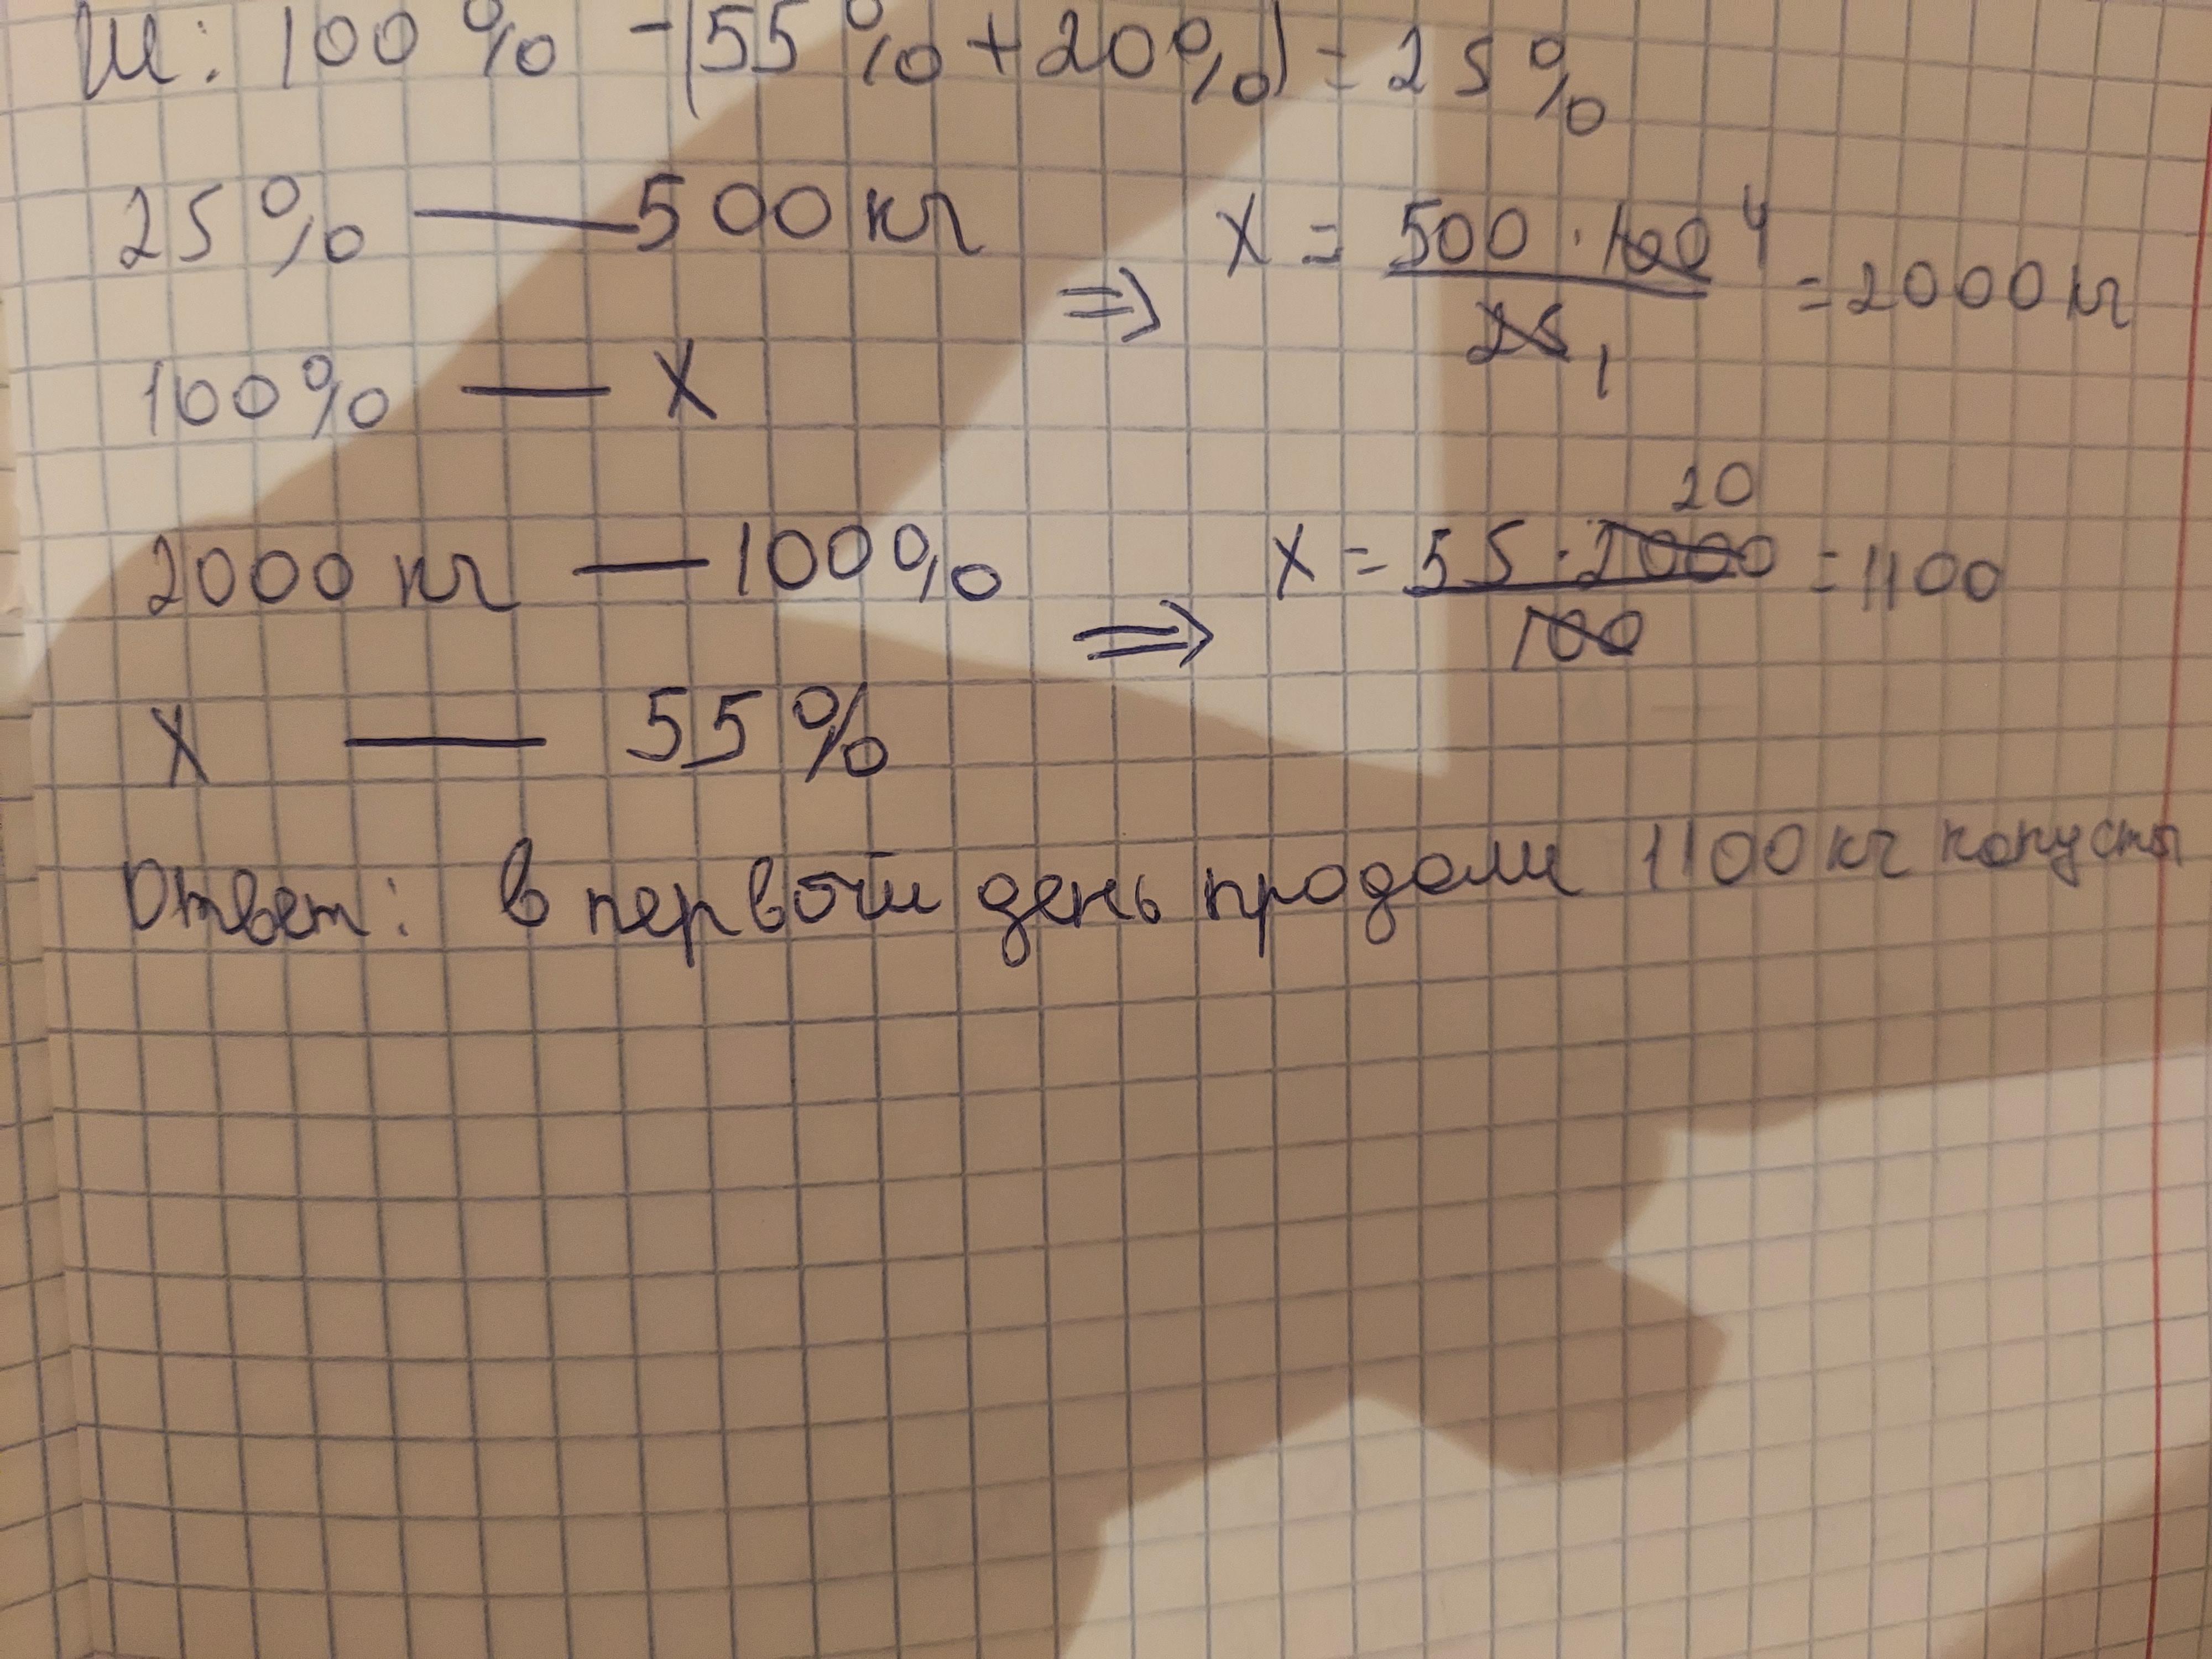 III: 100% - (55% + 20%) = 25%
25% — 500 кг
100% — X
=> X = 500 · 100 4 / 25 1 = 2000 кг
2000 кг — 100%
X — 55%
=> X = 55 · 2000 20 / 100 = 1100
Ответ: в первой день продали 1100 кг капусты